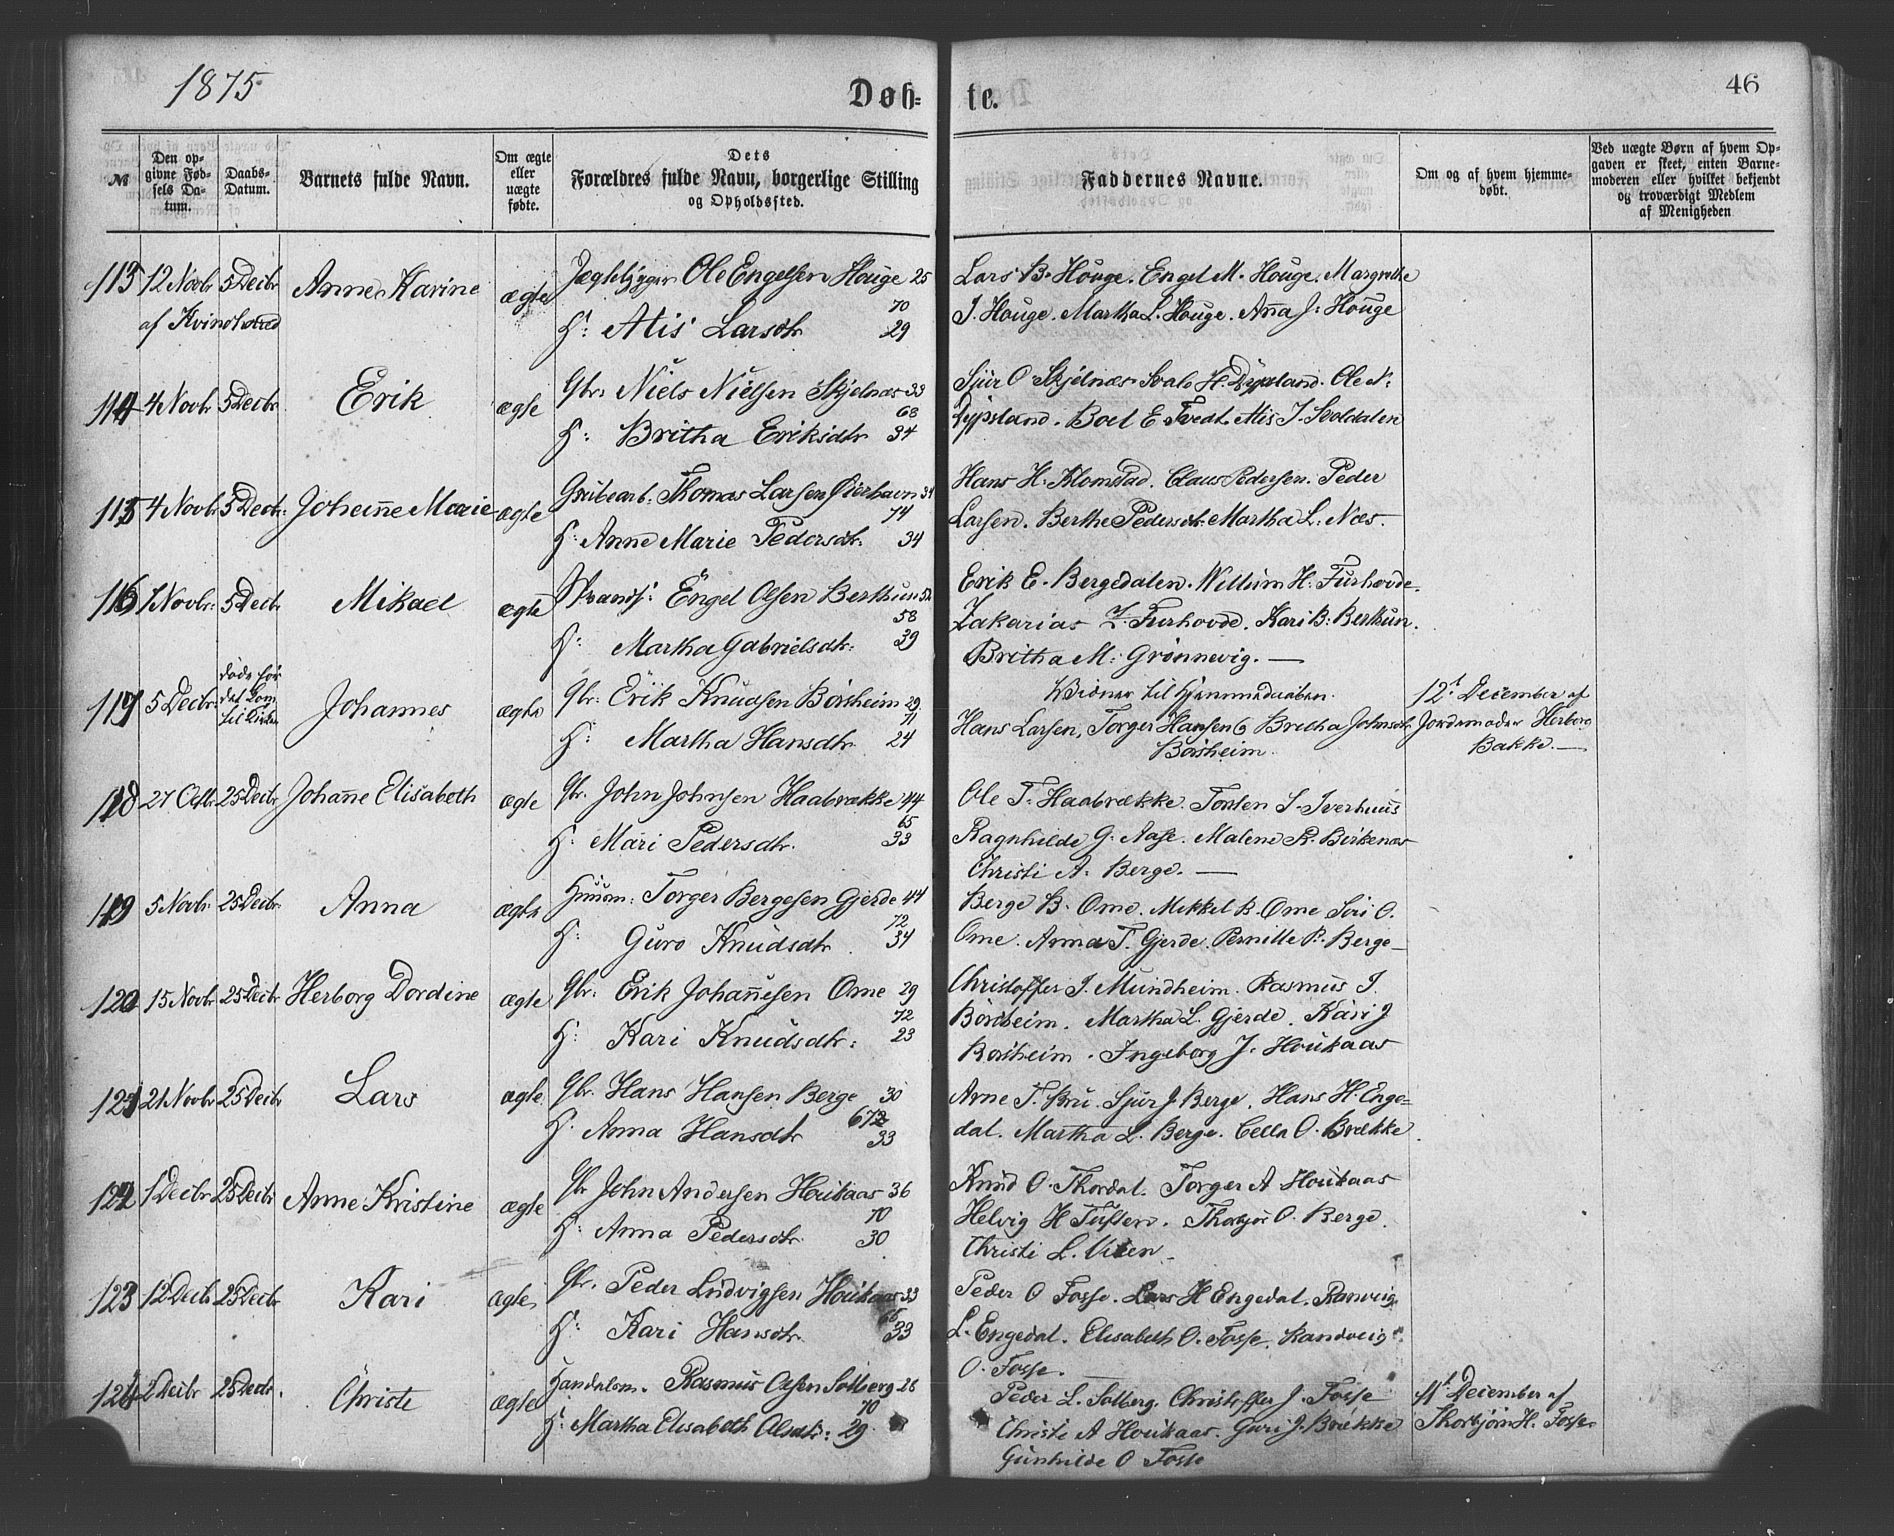 1875
Døb= te.
46
№
Den op-
givne Fød-
sels Da-
tum.
Daabs-
Datum.
Barnets fulde Navn.
Om ægte
eller
uægte
fødte.
Dets
Forældres fulde Navn, borgerlige Stilling
og Opholdssted.
Faddernes Navne.
Om og af hvem hjemme-
døbt.
Ved uægte Børn af hvem Op-
gaven er skeet, enten Barne-
moderen eller hvilket bekjendt
og troværdigt Medlem
af Menigheden
113 12 Novbr 5 Decbr Anne Karine ægte Jægtebygger Ole Engelsen Houge 25
af Kvindherred
70
H: Alis Larsdtr 29
Lars B. Houge. Engel M. Houge. Margrethe
J. Houge. Martha L. Houge. Anna J: Houge
114 4 Novbr 5 Decbr Erik ægte Gbr: Niels Nielsen Skjelnæs 33
68
H: Britha Eriksdtr 34
Sjur O Skjelnæs H. Dypsland. Ole N:
Dypsland. Boel E Tvedt. Alis J. Soldalen
115 4 Novbr 5 Decbr: Johanne Marie ægte Grubearb: Thomas Larsen Øierhavn 31
74
H: Anne Marie Pedersdtr: 34
Hans H. Klomstad. Claus Pedersen. Peder
Larsen. Berthe Pedersdtr. Martha L. Næs.
116 1 Novbr: 5 Decbr Mikael ægte Strands: Engel Olsen Berthun 52
58
H: Martha Gabrielsdtr: 39
Erik E. Bergedalen. Willum H: Furhovde.
Zakarias Z. Furhovde. Kari B: Berthun.
Britha M: Grønnevig. —
117 5 Decbr: døde før det kom til Kirken Johannes ægte Gbr: Erik Knudsen Børsheim 29
71
H: Martha Hansdtr 24
Vidner til Hjemmedaaben.
Hans Larsen, Torger Hansen & Britha Johnsdtr
Børsheim
12t December af
Jordemoder Herborg
Bakke. —
118 27 Octbr 25 Decbr Johanne Elisabeth ægte Gbr. John Johnsen Haabrække 44
65
H: Mari Pedersdtr. 33
Ole T. Haabrække. Torsten S. Iverhuus
Ragnhilde G. Aase. Malene R. Birkenæs
Christi A. Berge. —
119 5 Novbr 25 Decbr. Anna ægte Huusm: Torger Bergesen Gjerde 44
72
H: Guro Knudsdtr. 34
Berge B. Ome. Mikkel B. Ome Siri O.
Ome. Anna T. Gjerde. Pernille P. Berge—
120 15 Novbr 25 Decbr Herborg Dordine ægte Gbr: Erik Johannesen Ome 29
72
H: Kari Knudsdtr: 23
Christoffer J. Mundheim. Rasmus J.
Børsheim. Martha L. Gjerde. Kari J
Børsheim. Ingeborg J. Houkaas
121 21 Novbr 25 Decbr Lars ægte Gbr. Hans Hansen Berge 30
H. Anna Hansdtr 33
Arne T. Bru. Sjur J Berge. Hans H. Enge=
dal. Martha L. Berge. Cella O. Brække.
122 1 Decbr 25 Decbr Anne Kristine ægte Gbr John Andersen Houkaas 36
70
H: Anna Pedersdtr. 30
Knud O. Thordal. Torger A Houkaas
Helvig H Tuften. Thorbjør O. Berge.
Christi L. Viken
123 12 Decbr 25 Decbr Kari ægte Gbr. Peder Ludvigsen Houkaas 33
65
H: Kari Hansdtr. 33
Peder O Fosse. Lars H Engedal. Ranveig
L. Engedal. Elisabeth O. Fosse. Randveig
O. Fosse.
124 2 Decbr 25 Decbr. Christi ægte Handelsm. Rasmus Olsen Solberg 28
70
H: Martha Elisabeth Olsdtr: 29
Peder L. Solberg. Christoffer J. Fosse
Christi A Houkaas. Guri J. Brække
Gunhilde O Fosse
11t December af
Thorbjørn H. Fosse